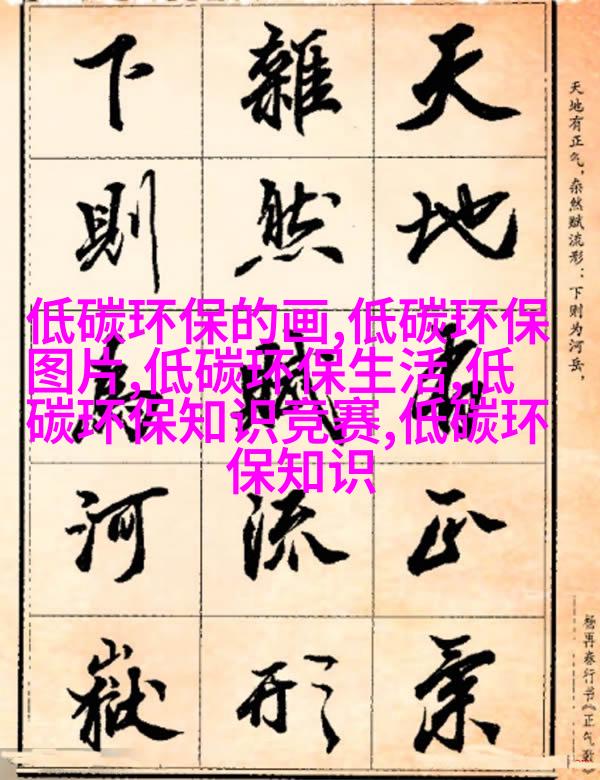 天地有正氣
雜然賦流形
下則為河嶽
天地有正气，杂然赋流形：下则为河岳，
杨再春行书《正气歌》
低碳环保的画,低碳环保
图片,低碳环保生活,低
碳环保知识竞赛,低碳环
保知识